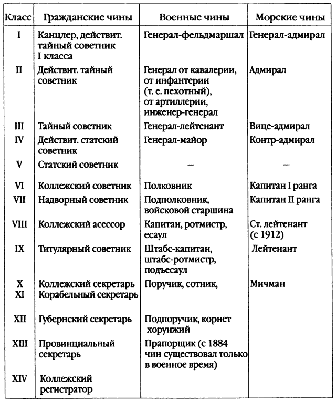 Класс Гражданские чины Военные чины Морские чины
I Канцлер, действит. Генерал-фельдмаршал Генерал-адмирал
тайный советник
I класса
II Действит. тайный Генерал от кавалерии, Адмирал
советник от инфантерии
(т. е. пехотный),
от артиллерии,
инженер-генерал
III Тайный советник Генерал-лейтенант Вице-адмирал
IV Действит. статский Генерал-майор Контр-адмирал
советник
V Статский советник – –
VI Коллежский советник Полковник Капитан I ранга
VII Надворный советник Подполковник, Капитан II ранга
войсковой старшина
VIII Коллежский асессор Капитан, ротмистр, Ст. лейтенант
есаул (с 1912)
IX Титулярный советник Штабс-капитан, Лейтенант
штабс-ротмистр,
подъесаул
X Коллежский секретарь Поручик, сотник, Мичман
XI Корабельный секретарь
XII Губернский секретарь Подпоручик, корнет
хорунжий
XIII Провинциальный Прапорщик (с 1884
секретарь чин существовал только
в военное время)
XIV Коллежский
регистратор